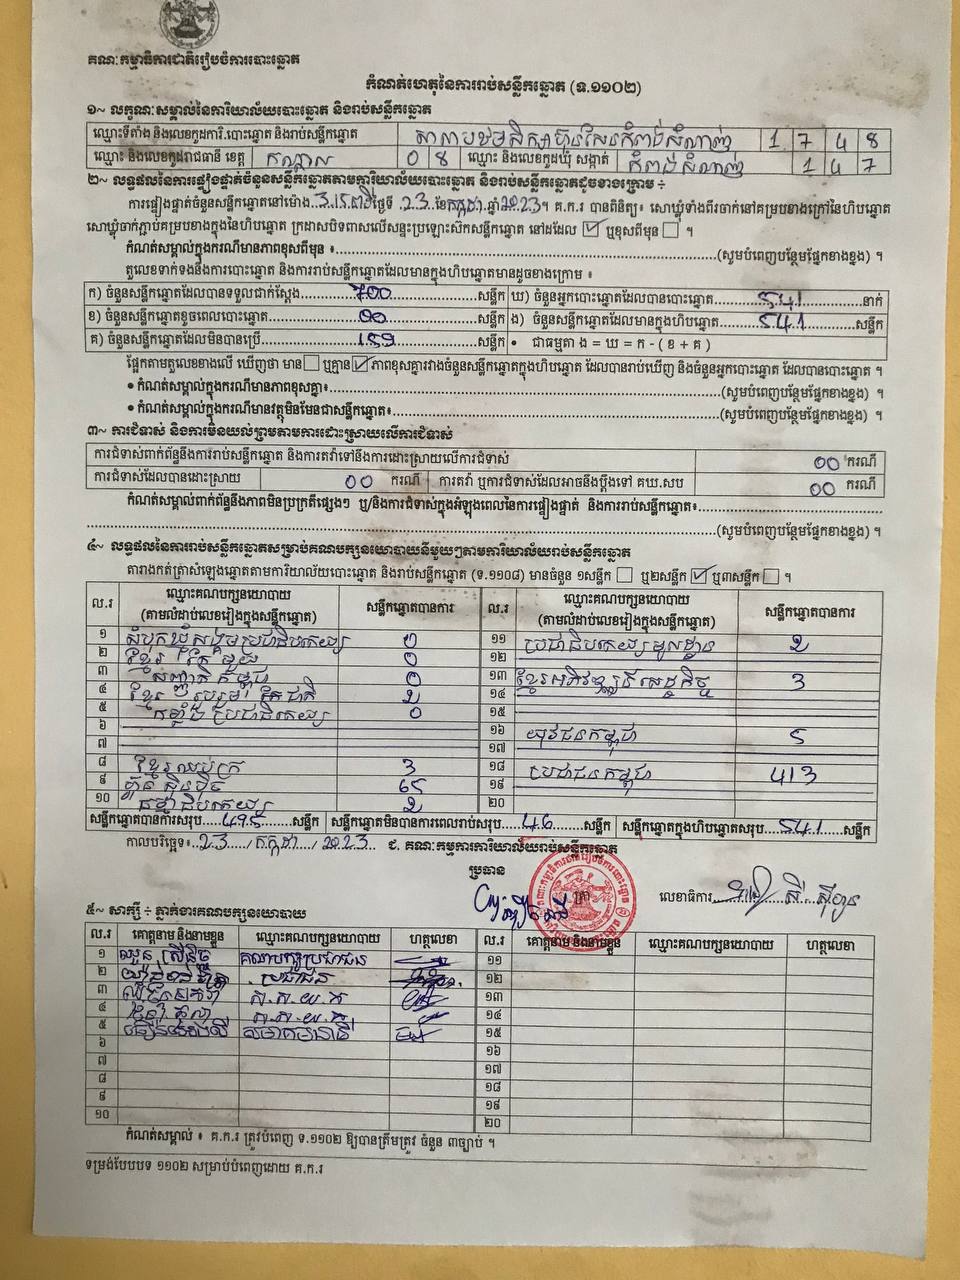 គណៈកម្មាធិការជាតិរៀបចំការបោះឆ្នោត
កំណត់ហេតុនៃការរាប់សន្លឹកឆ្នោត (ទ.១១០២)
១~ លក្ខណៈសម្គាល់នៃការិយាល័យបោះឆ្នោត និងរាប់សន្លឹកឆ្នោត
ឈ្មោះទីតាំង និងលេខកូដការិ.បោះឆ្នោត និងរាប់សន្លឹកឆ្នោត 1 7 4 8
ឈ្មោះ និងលេខកូដរាជធានី ខេត្ត កណ្តាល 0 8 ឈ្មោះ និងលេខកូដឃុំ សង្កាត់ កំពង់សំណាញ់ 1 4 7
២~ លទ្ធផលនៃការផ្ទៀងផ្ទាត់ចំនួនសន្លឹកឆ្នោតតាមការិយាល័យបោះឆ្នោត និងរាប់សន្លឹកឆ្នោតដូចខាងក្រោម ៖
ការផ្ទៀងផ្ទាត់ចំនួនសន្លឹកឆ្នោតនៅម៉ោង 3.15 នាទី ថ្ងៃទី 23 ខែ កក្កដា ឆ្នាំ 2023។ គ.ក.រ បានពិនិត្យ៖ សោឃ្លុំទាំងពីរចាក់នៅគម្របខាងក្រៅនៃហិបឆ្នោត
សោឃ្លុំចាក់ភ្ជាប់គម្របខាងក្នុងនៃហិបឆ្នោត ក្រដាសបិទពាសលើសន្ទះប្រឡោះស៊កសន្លឹកឆ្នោត នៅដដែល ☑ ឬខុសពីមុន ☐ ។
កំណត់សម្គាល់ក្នុងករណីមានភាពខុសពីមុន ៖ (សូមបំពេញបន្ថែមផ្នែកខាងខ្នង) ។
តួលេខទាក់ទងនឹងការបោះឆ្នោត និងការរាប់សន្លឹកឆ្នោតដែលមានក្នុងហិបឆ្នោតមានដូចខាងក្រោម ៖
ក) ចំនួនសន្លឹកឆ្នោតដែលបានទទួលជាក់ស្តែង 700 សន្លឹក ឃ) ចំនួនអ្នកបោះឆ្នោតដែលបានបោះឆ្នោត 541 នាក់
ខ) ចំនួនសន្លឹកឆ្នោតខូចពេលបោះឆ្នោត 00 សន្លឹក ង) ចំនួនសន្លឹកឆ្នោតដែលមានក្នុងហិបឆ្នោត 541 សន្លឹក
គ) ចំនួនសន្លឹកឆ្នោតដែលមិនបានប្រើ 159 សន្លឹក • ជាធម្មតា ង = ឃ = ក - ( ខ + គ )
ផ្អែកតាមតួលេខខាងលើ ឃើញថា មាន ☐ ឬគ្មាន ☑ ភាពខុសគ្នារវាងចំនួនសន្លឹកឆ្នោតក្នុងហិបឆ្នោត ដែលបានរាប់ឃើញ និងចំនួនអ្នកបោះឆ្នោត ដែលបានបោះឆ្នោត ។
• កំណត់សម្គាល់ក្នុងករណីមានភាពខុសគ្នា៖ (សូមបំពេញបន្ថែមផ្នែកខាងខ្នង) ។
• កំណត់សម្គាល់ក្នុងករណីមានវត្ថុមិនមែនជាសន្លឹកឆ្នោត៖ (សូមបំពេញបន្ថែមផ្នែកខាងខ្នង) ។
៣~ ការជំទាស់ និងការមិនយល់ព្រមតាមការដោះស្រាយលើការជំទាស់
ការជំទាស់ពាក់ព័ន្ធនឹងការរាប់សន្លឹកឆ្នោត និងការតវ៉ាទៅនឹងការដោះស្រាយលើការជំទាស់ 00 ករណី
ការជំទាស់ដែលបានដោះស្រាយ 00 ករណី ការតវ៉ា ឬការជំទាស់ដែលអាចនឹងប្តឹងទៅ គឃ.សប 00 ករណី
កំណត់សម្គាល់ពាក់ព័ន្ធនឹងភាពមិនប្រក្រតីផ្សេងៗ ឬ/និងការជំទាស់ក្នុងអំឡុងពេលនៃការផ្ទៀងផ្ទាត់ និងការរាប់សន្លឹកឆ្នោត៖
(សូមបំពេញបន្ថែមផ្នែកខាងខ្នង) ។
៤~ លទ្ធផលនៃការរាប់សន្លឹកឆ្នោតសម្រាប់គណបក្សនយោបាយនីមួយៗតាមការិយាល័យរាប់សន្លឹកឆ្នោត
តារាងកត់ត្រាសំឡេងឆ្នោតតាមការិយាល័យបោះឆ្នោត និងរាប់សន្លឹកឆ្នោត (ទ.១១០៨) មានចំនួន ១សន្លឹក ☐ ឬ២សន្លឹក ☑ ឬ៣សន្លឹក ☐ ។
ល.រ ឈ្មោះគណបក្សនយោបាយ (តាមលំដាប់លេខរៀងក្នុងសន្លឹកឆ្នោត) សន្លឹកឆ្នោតបានការ ល.រ ឈ្មោះគណបក្សនយោបាយ (តាមលំដាប់លេខរៀងក្នុងសន្លឹកឆ្នោត) សន្លឹកឆ្នោតបានការ
១ សំបុកឃ្មុំសង្គមប្រជាធិបតេយ្យ 0 ១១ ប្រជាធិបតេយ្យមូលដ្ឋាន 2
២ ខ្មែររួបរួម 0 ១២
៣ សញ្ជាតិកម្ពុជា 0 ១៣ ខ្មែរអភិវឌ្ឍន៍សេដ្ឋកិច្ច 3
៤ ខ្មែររួបរួមជាតិ 2 ១៤
៥ កម្លាំងប្រជាធិបតេយ្យ 0 ១៥
៦ ១៦ យុវជនកម្ពុជា 5
៧ ១៧
៨ ខ្មែរឈប់ក្រ 3 ១៨ ប្រជាជនកម្ពុជា 413
៩ ហ៊្វុនស៊ិនប៉ិច 65 ១៩
១០ ធម្មាធិបតេយ្យ 2 ២០
សន្លឹកឆ្នោតបានការសរុប 495 សន្លឹក សន្លឹកឆ្នោតមិនបានការពេលរាប់សរុប 46 សន្លឹក សន្លឹកឆ្នោតក្នុងហិបឆ្នោតសរុប 541 សន្លឹក
កាលបរិច្ឆេទ៖ 23 / កក្កដា / 2023 ជ. គណៈកម្មការការិយាល័យរាប់សន្លឹកឆ្នោត
ប្រធាន
ត្រា
លេខាធិការ
៥~ សាក្សី ÷ ភ្នាក់ងារគណបក្សនយោបាយ
ល.រ គោត្តនាម និងនាមខ្លួន ឈ្មោះគណបក្សនយោបាយ ហត្ថលេខា ល.រ គោត្តនាម និងនាមខ្លួន ឈ្មោះគណបក្សនយោបាយ ហត្ថលេខា
១ គណបក្សប្រជាជន ១១
២ ប្រជាជន ១២
៣ គ.គ.យ.ក ១៣
៤ គ.គ.យ.ក ១៤
៥ ១៥
៦ ១៦
៧ ១៧
៨ ១៨
៩ ១៩
១០ ២០
កំណត់សម្គាល់ ៖ គ.ក.រ ត្រូវបំពេញ ទ.១១០២ ឱ្យបានត្រឹមត្រូវ ចំនួន ៣ច្បាប់ ។
ទម្រង់បែបបទ ១១០២ សម្រាប់បំពេញដោយ គ.ក.រ